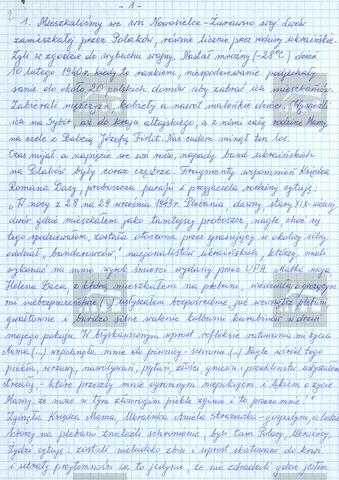 - 1 -
1. Mieszkaliśmy we wsi Nowosielce - Żurawno woj. lwów
zamieszkałej przez Polaków, równie licznie przez rodziny ukraińskie.
Żyli w zgodzie do wybuchu wojny. Nastał mroźny (-28°C) dzień
10 lutego 1940r. kiedy to rankiem, niespodziewanie podjechały
sanie do około 20 polskich domów aby zabrać ich mieszkańców.
Zabierali mężczyzn, kobiety a nawet maleńkie dzieci. Wywieźli
ich na Sybir, aż do kraju ałtajskiego, a z nimi całą rodzinę Mamy,
na czele z Babcią Józefą Firlet. Nas cudem minął ten los.
Czas mijał a napięcie we wsi rosło, napady band ukraińskich
na Polaków były coraz częstsze. Fragmenty wspomnień Księdza
Romana Dacy, proboszcza parafii i przyjaciela rodziny cytuję:
"W nocy z 28 na 29 września 1943r. Plebania, dawny, stary XIX-wieczny
dwór gdzie mieszkałem jako tamtejszy proboszcz, nagle, choć się
tego spodziewałem, została otoczona przez grasujący w okolicy silny
oddział "banderowców" nacjonalistów ukraińskich, którzy mieli
wykonać na mnie wyrok śmierci wydany przez UPA. Matka moja,
Helena Daca, z którą mieszkałem na plebani, wiedziała o grożącym
mi niebezpieczeństwie (...) usłyszałem bezpośrednio już wewnątrz plebani
gwałtowne i bardzo silne walenie kolbami karabinów w drzwi
mojego pokoju. W błyskawicznym wprost refleksie ratowania mi życia
Mama (...) wepchnęła mnie do piwnicy - schronu (...) Nagle wśród tego
piekła, wrzasku, nawoływań, pytań, złości, gniewu i przekleństw usłyszałem
strzały - które przeszyły mnie ogromnym niepokojem i lękiem o życie
Mamy, że może w tym zbrodniczym piekle zginie i to przeze mnie!"
Zginęła Księdza Mama, Ukrainka Aniela - gospodyni a ludzie
którzy na plebani znaleźli schronienie, byli tam Polacy, Ukraińcy,
Żydzi cytuję: zostali nieludzko zbici i wprost skatowani do krwi
i utraty przytomności za to jedynie, że nie zdradzili gdzie jestem